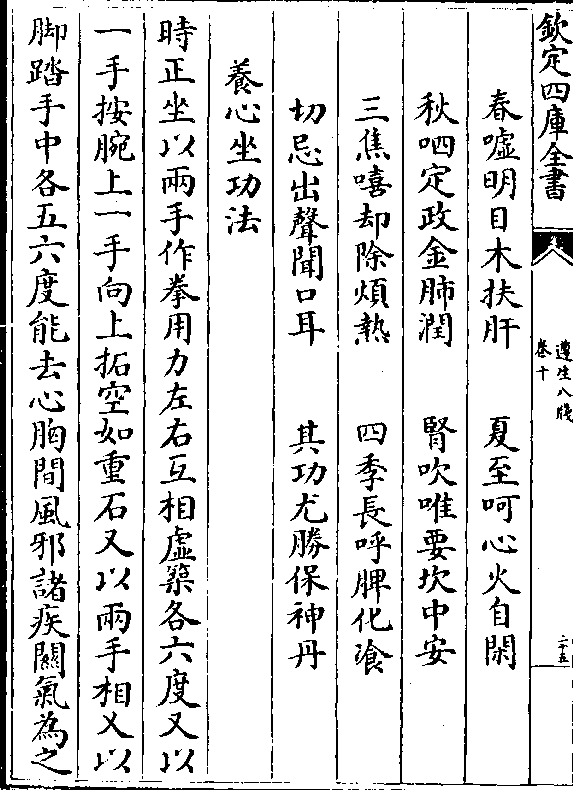 欽定四庫全書
遵生八牋
卷十
二十五
春噓明目木扶肝　夏至呵心火自閑
秋呬定政金肺潤　腎吹唯要坎中安
三焦嘻却除煩熱　四季長呼脾化飡
切忌出聲聞口耳　其功尤勝保神丹
養心坐功法
時正坐以兩手作拳用力左右互相虛築各六度又以
一手按腕上一手向上拓空如重石又以兩手相乂以
脚踏手中各五六度能去心胸間風邪諸疾關氣為之